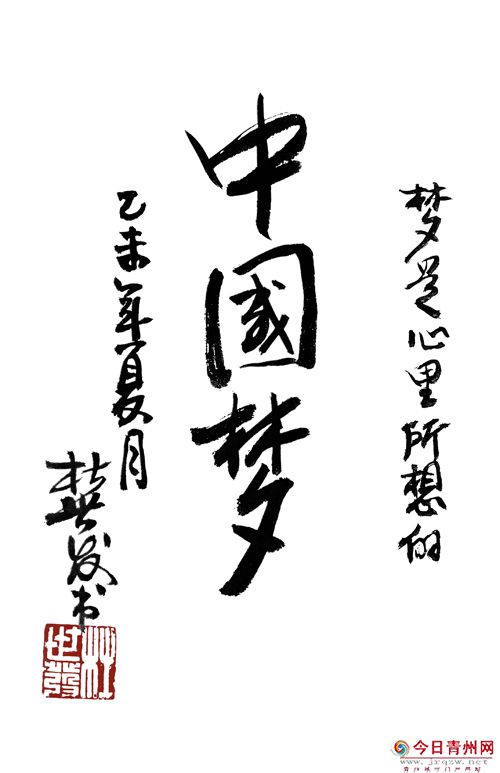 梦是心里所想的
中國梦
乙未年夏月
杜世发书
杜世發
今日青州网
www.jrqzw.net